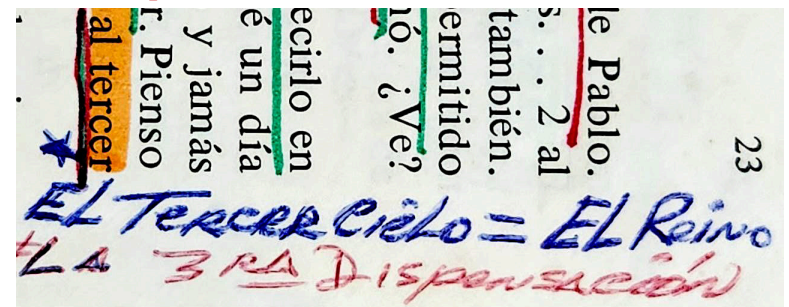 23
le Pablo.
s. . . 2 al
también.
ermitido
nó. ¿Ve?
ecirlo en
é un día
y jamás
r. Pienso
al tercer
EL TERCER CieLo = EL Reino
LA 3RA Dispensación